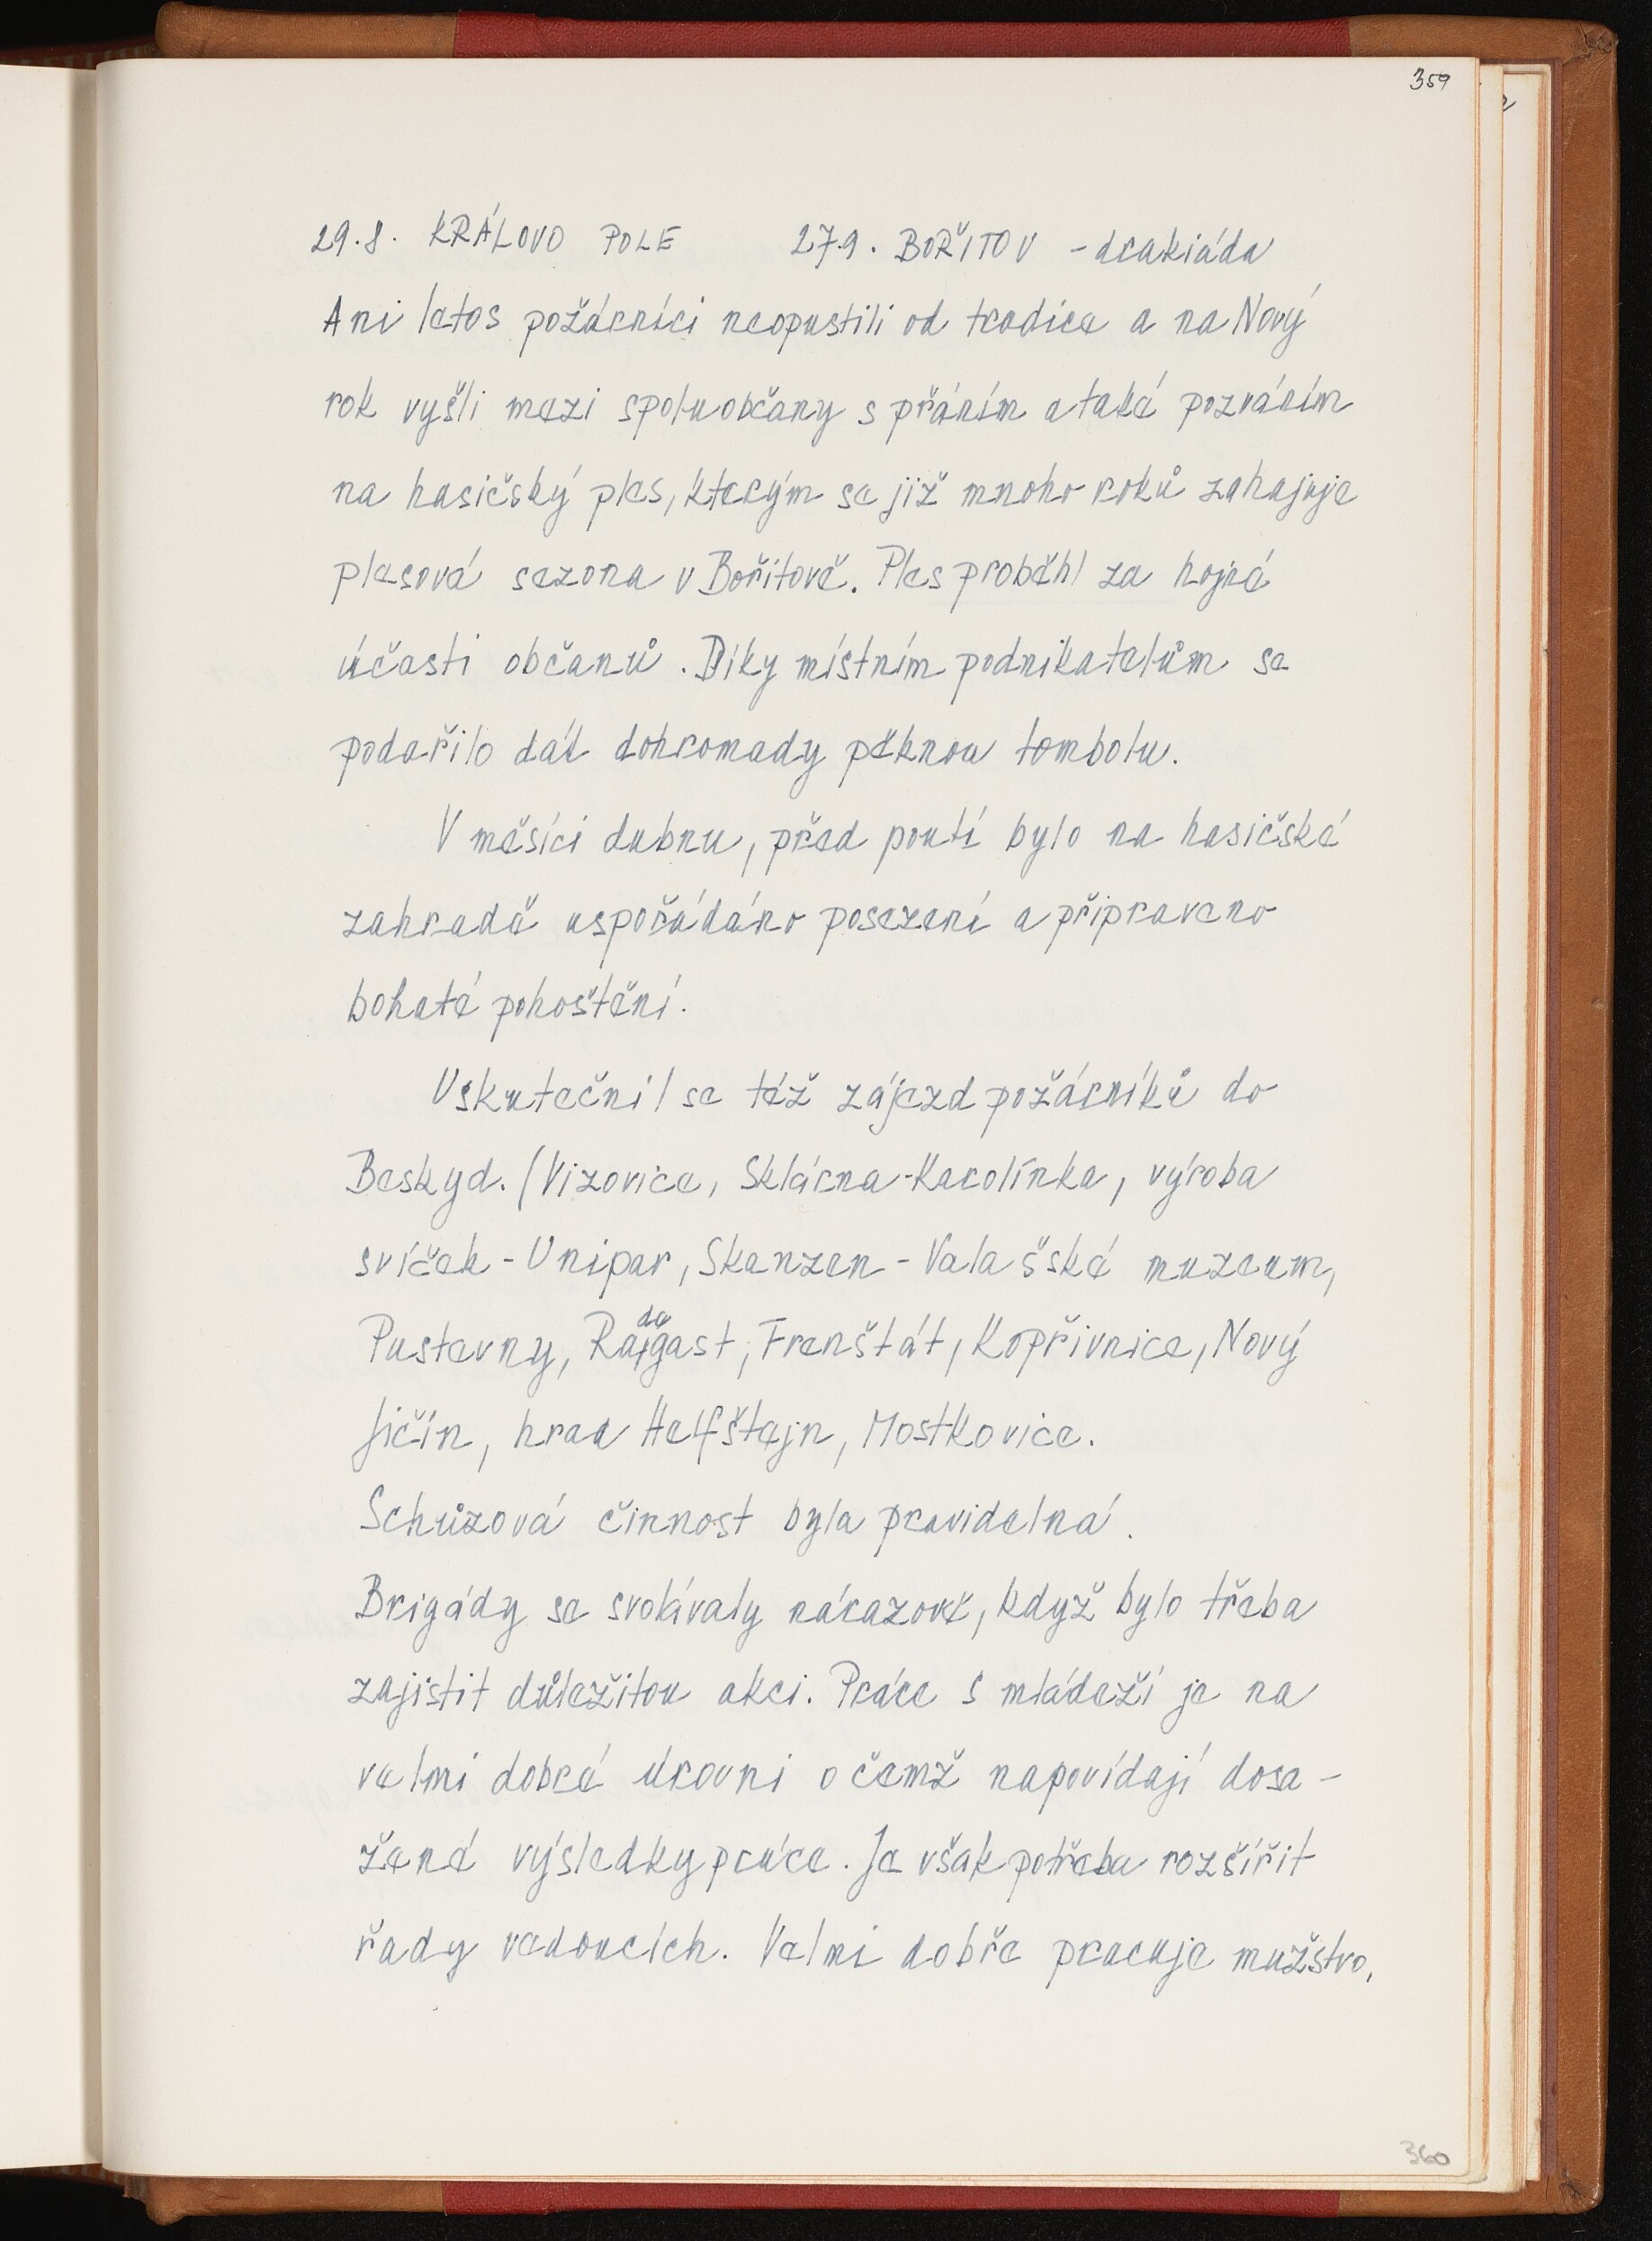 359
29.8. KRÁLOVO POLE 27.9. BOŘITOV - drakiáda
Ani letos požárníci neopustili od tradice a na Nový
rok vyšli mezi spoluobčany s přáním a také pozváním
na hasičský ples, kterým se již mnoho roků zahajuje
plesová sezona v Bořitově. Ples proběhl za hojné
účasti občanů. Díky místním podnikatelům se
podařilo dát dohromady pěknou tombolu.
V měsíci dubnu, před poutí bylo na hasičské
zahradě uspořádáno posezení a připraveno
bohaté pohoštění.
Uskutečnil se též zájezd požárníků do
Beskyd. (Vizovice, Sklárna-Karolínka, výroba
svíček - Unipar, Skanzen - Valašské muzeum,
Pustevny, Radegast, Frenštát, Kopřivnice, Nový
Jičín, hrad Helfštejn, Mostkovice.
Schůzová činnost byla pravidelná.
Brigády se svolávaly nárazově, když bylo třeba
zajistit důležitou akci. Práce s mládeží je na
velmi dobré úrovni o čemž napovídají dosa-
žené výsledky práce. Je však potřeba rozšířit
řady vedoucích. Velmi dobře pracuje mužstvo,
360